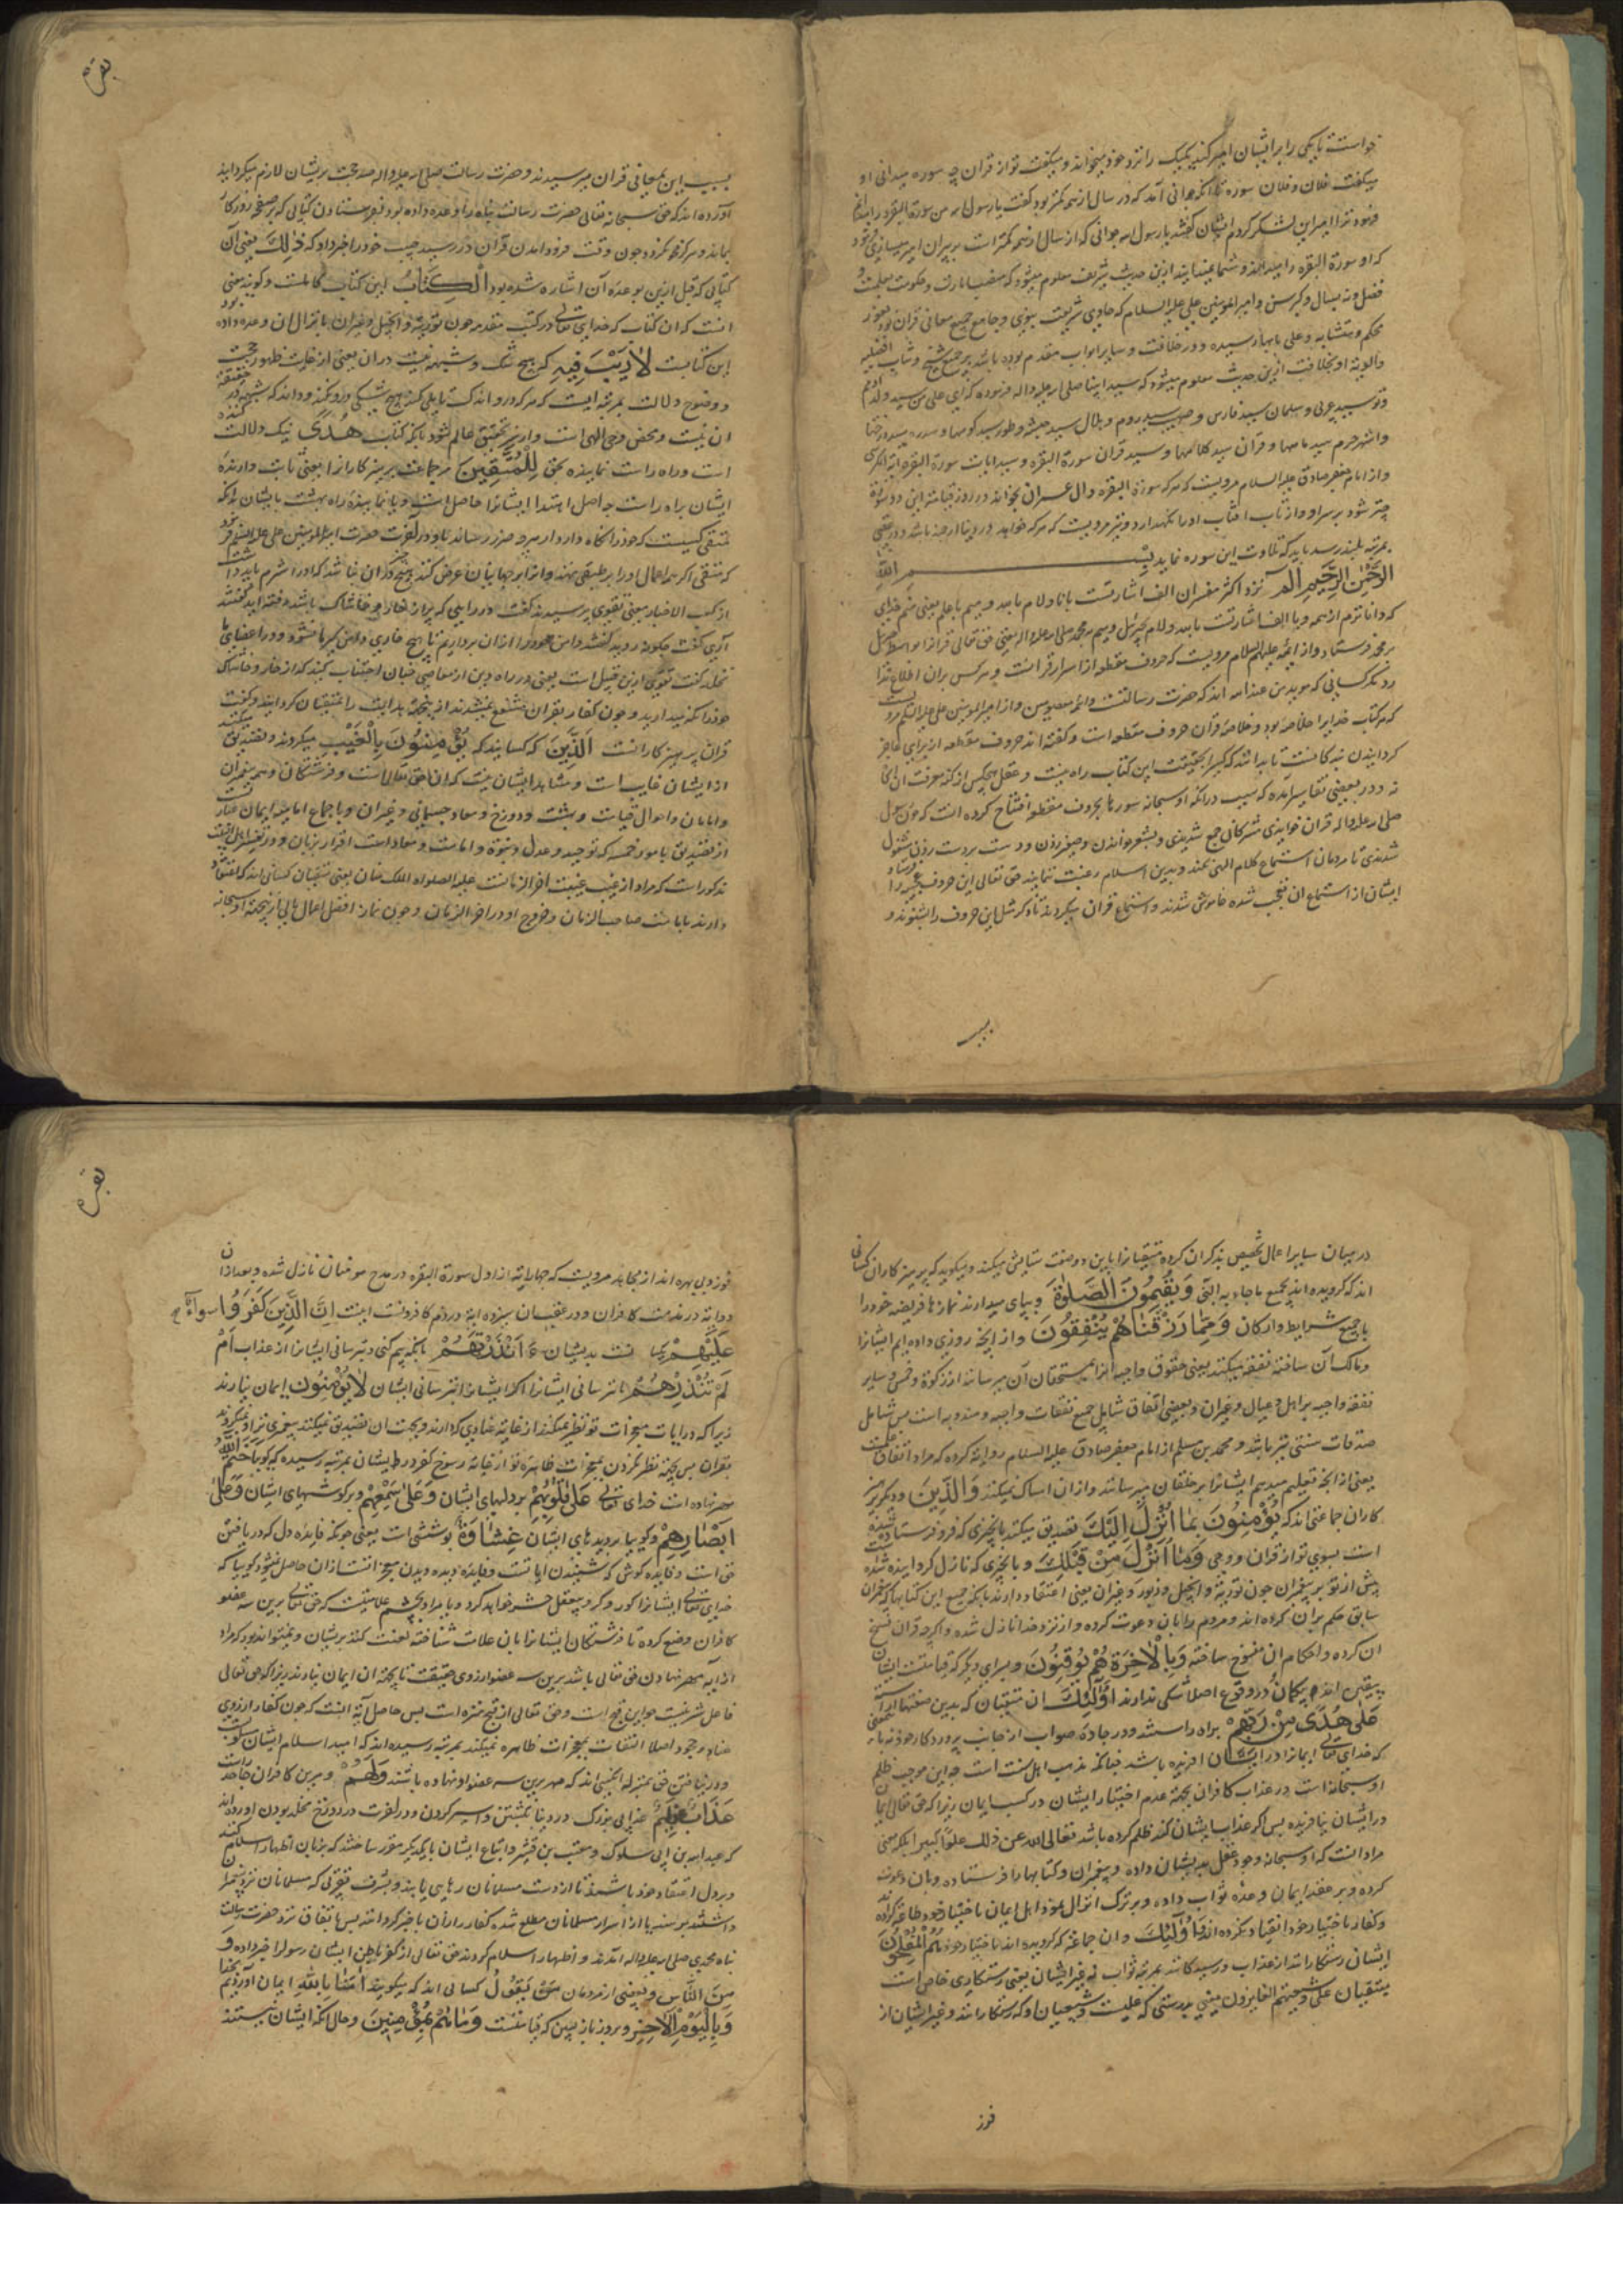 خواست تا یکی را بر ایشان امیر کند یک یک را نزد خود میخواند و میگفت تو از قران چه سوره میدانی او
میگفت فلان و فلان سوره تا آنکه جوانی آمد که در سال از همه کمتر بود گفت یا رسول الله من سورة البقره را میدانم
فرمود ترا امیر این لشکر کردم ایشان گفتند یا رسول الله جوانی که از سال از همه کمتر است بر پیران امیر میسازی فرمود
که او سورة البقره را میداند و شما نمیدانید ازین حدیث شریف معلوم میشود که منصب امارت و حکومت بعلمست و
فضل و نه بسال و کبر سن و امیر المؤمنین علی علیه السلام که حاوی شریعت نبوی و جامع جمیع معانی قران بود
محکم و متشابه و علی بابها رسیده و در خلافت و سایر ابواب مقدم بوده باشد بر جمیع شیخ و شاب
ازین حدیث معلوم میشود که سید انبیا صلی الله علیه و اله فرموده که ای علی من سید ولد آدم
و تو سید عربی و سلمان سید فارس و صهیب سید روم و بلال سید حبشه و طور سید کوهها و سدره سید درختها
و اشهر حرم سید ماهها و قرآن سید کلامها و سید قران سورة البقره و سید ایات سورة البقره آیة الکرسی
و از امام جعفر صادق علیه السلام مرویست که هر که سورة البقره و ال عمران بخواند در روز قیامت این دو سوره
چتر شود بر سر او و از تاب افتاب او را نگهدارد و نیز مرویست که هر که خواهد در دنیا ارجمند باشد و در عقبی
بمرتبه بلند رسد باید که تلاوت این سوره نماید بسم الله
الرَّحْمٰنِ الرَّحِیمِ الم نزد اکثر مفسران الف اشارتست بانا و لام بالله و میم باعلم یعنی منم خدای
که داناترم از همه و یا الف اشارتست بالله و لام بجبرئیل و میم بمحمد صلی الله علیه و اله یعنی حق تعالی قرانرا بواسطه جبرئیل
بر محمد فرستاد و از ائمه علیهم السلام مرویست که حروف مقطعه از اسرار قرانست و هر کس بران اطلاع ندارد
مگر کسانی که موید من عند الله اند که حضرت رسالتست و ائمه معصومین و از امیر المؤمنین علی علیه السلام مرویست
که هر کتاب خدایرا خلاصه بود و خلاصه قران حروف مقطعه است و گفته اند حروف مقطعه از برای عاجز
گردانیدن بندگانست تا بدانند که کسرا بحقیقت این کتاب راه نیست و عقل هیچکس از کنه معرفت ان اگاه
نه و در بعضی تفاسیر آمده که سبب در آنکه او سبحانه سورها بحروف مقطعه افتتاح کرده انست که چون رسول
صلی الله علیه و اله قران خواندی مشرکان جمع شدندی و بشعر خواندن و صفیر زدن و دست بر دست زدن مشغول
شدندی تا مردمان استماع کلام الهی نکنند و بدین اسلام رغبت ننمایند حق تعالی این حروف
ایشان از استماع ان تعجب شده خاموش شدند و استماع قران میکردند تا دیگر مثل این حروف را بشنوند و
بسبب
بقره
بسبب این بمعانی قران میرسیدند و حضرت رسالت صلی الله علیه و اله حجت بر ایشان لازم میگردانید
آورده اند که حق سبحانه تعالی حضرت رسالت پناه را وعده داده بود بفرستادن کتابی که بر صفحه روزگار
بماند و هرگز محو نگردد چون وقت فرود امدن قران در رسید حبیب خود را خبر داد که ذٰلِكَ یعنی آن
کتابی که قبل ازین بوعده آن اشاره شده بود الْكِتَابُ این کتاب کاملست و گویند معنی
انست که ان کتاب که خدای تعالی در کتب متقدمه چون تورته و انجیل و غیران بانزال ان وعده داده بود
این کتابست لاٰ رَیْبَ فِیهِ که هیچ شک و شبهه نیست دران یعنی از غایت ظهور حجت
و وضوح دلالت بمرتبه ایست که هر که درو اندک تاملی کند هیچ شکی درو نکند و داند که شبهه در حقیقت
ان نیست و محض وحی الهی است و از سر تحقیق عالم شود بانکه کتاب هُدًی نیک دلالت کننده
است و راه راست نماینده بحق لِلْمُتَّقِینَ مر جماعت پرهیزکارانرا یعنی ثابت دارنده
ایشان براه راست چه اصل اهتدا ایشانرا حاصل است و یا نماینده راه بهشت بایشان
متقی کیست که خود را نگاه دارد از هر چه ضرر رساند باو در آخرت حضرت امیر المؤمنین علی علیه السلام فرمود
که متقی اگر همه اعمال او را بر طبقی نهند و انرا بر جهانیان عرض کنند هیچ چیز دران نباشد که او را شرم باید داشت
از کعب الاخبار معنی تقوی پرسیدند گفت در راهی که پر از خار و خاشاک باشد رفته اید گفتند
آری گفت چگونه روید گفتند دامن خود را ازان برداریم تا هیچ خاری دامن گیر ما نشود و در اعضای ما
نخلد گفت تقوی ازین قبیل است یعنی در راه دین از معاصی چنان اجتناب کنید که از خار و خاشاک
خود را نگه میدارید و چون کفار بقران منتفع نمیشدند از ینجهت هدایت را بمتقیان گردانید و گفت
قران پرهیزکارانست اَلَّذِینَ که کسانیند که یُؤْمِنُونَ بِالْغَیْبِ میگروند و تصدیق میکنند بانچه
از ایشان غایب است و مشاهد ایشان نیست که ان حق تعالیاست و فرشتگان و پیغمبران
و امامان و احوال قیامت و بهشت و دوزخ و معاد جسمانی و غیران و باجماع امامیه ایمان عبارتست
از تصدیق بامور خمسه که توحید و عدل و نبوة و امامت و معاد است و اقرار بزبان و در تفسیر اهل البیت
مذکور است که مراد از غیب غیبت اخر الزمانست علیه الصلوات الملک المنان یعنی متقیان کسانی اند که اعتقاد
دارند بامامت صاحب الزمان و خروج او در اخر الزمان و چون نماز افضل اعمال بدنیست ازینجهت او سبحانه
در میان سایر اعمال تخصیص بذکر ان کرده متقیانرا باین دو صفت ستایش میکند و میگوید که پرهیزکاران کسانی
اند که گرویده اند بجمیع ما جاء به النبی وَ یُقِیمُونَ الصَّلوٰةَ و بپای میدارند نمازها فریضه خود را
با جمیع شرایط و ارکان وَ مِمّٰا رَزَقْنَاهُمْ یُنْفِقُونَ و از انچه روزی داده ایم ایشانرا
و مالک آن ساخته نفقه میکنند یعنی حقوق واجبه انرا بمستحقان آن میرسانند از زکوة و خمس و سایر
نفقه واجبه بر اهل و عیال و غیران و بعضی انفاق شامل جمیع نفقات واجبه و مندوبه است پس شامل
صدقات سنتی نیز باشد و محمد بن مسلم از امام جعفر صادق علیه السلام روایة کرده که مراد انفاق علمست
یعنی از انچه تعلیم میدهیم ایشانرا بر خلقان میرسانند و ازان امساک نمیکنند وَ الَّذِینَ و دیگر پرهیز
کاران جماعتی اند که یُؤْمِنُونَ بِمٰا اُنْزِلَ اِلَیْكَ تصدیق میکنند بانچیزی که فرو فرستاده شده
است بسوی تو از قران و وحی وَ مٰا اُنْزِلَ مِنْ قَبْلِكَ و بانچیزی که نازل گردانیده شده است
پیش از تو بر پیغمبران چون تورته و انجیل و زبور و غیران یعنی اعتقاد دارند بانکه جمیع این کتابها که پیغمبران
سابق حکم بران کرده اند و مردم را بان دعوت کرده و از نزد خدا نازل شده و اگرچه قران نسخ
ان کرده و احکام ان منسوخ ساخته وَ بِالْاٰخِرَةِ هُمْ یُوقِنُونَ و بسرای دیگر که قیامتست ایشان
بیقین اند و در وقوع اصلا شکی ندارند اُولٰئِكَ ان متقیان که بدین صفتها اراسته
عَلٰی هُدًی مِنْ رَبِّهِمْ براه راستند و در جاده صواب از جانب پروردگار خود نه بان معنی
که خدای تعالی ایمانرا در ایشان افریده باشد چنانکه مذهب اهل سنت است چه این موجب ظلم
او سبحانه است در عذاب کافران بجهته عدم اختیار ایشان در کسب ایمان زیرا که حق تعالی ایمان
در ایشان نیافریده پس اگر عذاب ایشان کند ظلم کرده باشد تعالی الله عن ذلك علوًا کبیرا بلکه معنی
مراد انست که او سبحانه وجود عقل بدیشان داده و پیغمبران و کتابها را فرستاده و بان دعوت
کرده و بر عقد ایمان وعده ثواب داده و بر ترک انزال اهل ایمان باختیار خود طاعت کرده اند
و کفار باختیار خود انقیاد نکرده اند وَ اُولٰئِكَ و ان جماعة که گرویده اند باختیار خود هُمُ الْمُفْلِحُونَ
ایشان رستگارانند از عذاب و رسیدگانند بمرتبه ثواب نه غیر ایشان یعنی رستگاری خاص است
بمتقیان علی و شیعتهم الفایزون یعنی بدرستی که علیست و شیعیان او که رستگارانند و غیر ایشان از
فوز
بقره
فوز بی بهره اند از مجاهد مرویست که چهار آیه از اول سورة البقره در مدح مومنان نازل شده و بعد ازان
دو آیه در مذمت کافران و در عقب ان سیزده آیه در ذم کافرانست اینست اِنَّ الَّذِینَ كَفَرُوا سَوَاءٌ
عَلَیْهِمْ یکسانست بدیشان ءَ اَنْذَرْتَهُمْ بانکه بیم کنی و بترسانی ایشانرا از عذاب اَمْ
لَمْ تُنْذِرْهُمْ یا نترسانی ایشانرا اگر ایشانرا نترسانی ایشان لاٰ یُؤْمِنُونَ ایمان نیارند
زیرا که در ایات معجزات تو نظر نمیکنند از غایة عنادی که دارند و بجهت ان تصدیق نمیکنند پیغمبری ترا و نمیگروند
بقران پس بجهته نظر نکردن بمعجزات ظاهره تو از غایة رسوخ کفر در دل ایشان بمرتبه رسیده که گویا خَتَمَ اللّٰهُ
مهر نهاده است خدای تعالی عَلٰی قُلُوبِهِمْ بر دلهای ایشان وَ عَلٰی سَمْعِهِمْ و بر گوشهای ایشان وَ عَلٰی
اَبْصَارِهِمْ و گوییا بر دیدهای ایشان غِشَاوَةٌ پوششی است یعنی چونکه فایده دل که دریافتن
حق است و فایده گوش که شنیدن ایاتست و فایده دیده دیدن معجزاتست ازان حاصل نمیشود گوییا که
خدای تعالی ایشانرا کور و کر و بیعقل حشر خواهد کرد و یا مراد بختم علامتیست که حق تعالی برین سه عضو
کافران وضع کرده تا فرشتگان ایشانرا بان علامت شناخته لعنت کنند بر ایشان و نمیتواند بود که مراد
از ایه مهر نهادن حق تعالی باشد برین سه عضو از روی حقیقت تا بجهته ان ایمان نیارند زیرا که حق تعالی
فاعل شر نیست چو این قبیح است و حق تعالی از قبح منزه است پس حاصل آیه انست که چون کفار از روی
عناد و جحود اصلا التفات بمعجزات ظاهره نمیکنند بمرتبه رسیده اند که امید اسلام ایشان مسلوبست
و در نیافتن حق بمنزله انکسی اند که مهر برین سه عضو او نهاده باشند وَ لَهُمْ و مر این کافران جاحد راست
عَذَابٌ عَظِیمٌ عذابی بزرگ در دنیا بکشتن و اسیر کردن و در آخرت در دوزخ مخلد بودن اورده اند
که عبد الله بن ابی سلول و معتب بن قشیر و اتباع ایشان با یکدیگر مقرر ساختند که بزبان اظهار اسلام کنند
و بر دل اعتقاد خود باشند تا از دست مسلمانان رهایی یابند و بشرف تقربی که مسلمانان نزد پیغمبر
داشتند برسند یا از اسرار مسلمانان مطلع شده کفار را از ان باخبر گردانند پس باتفاق نزد حضرت رسالت
پناه محمدی صلی الله علیه و اله آمدند و اظهار اسلام کردند حق تعالی از کفر باطن ایشان رسول را خبر داد
مِنَ النَّاسِ و بعضی از مردمان مَنْ یَقُولُ کسانی اند که میگویند اٰمَنّٰا بِاللّٰهِ ایمان آوردیم بخدا
وَ بِالْیَوْمِ الْاٰخِرِ و بروز بازپسین که قیامتست وَ مٰا هُمْ بِمُؤْمِنِینَ و حال آنکه ایشان نیستند